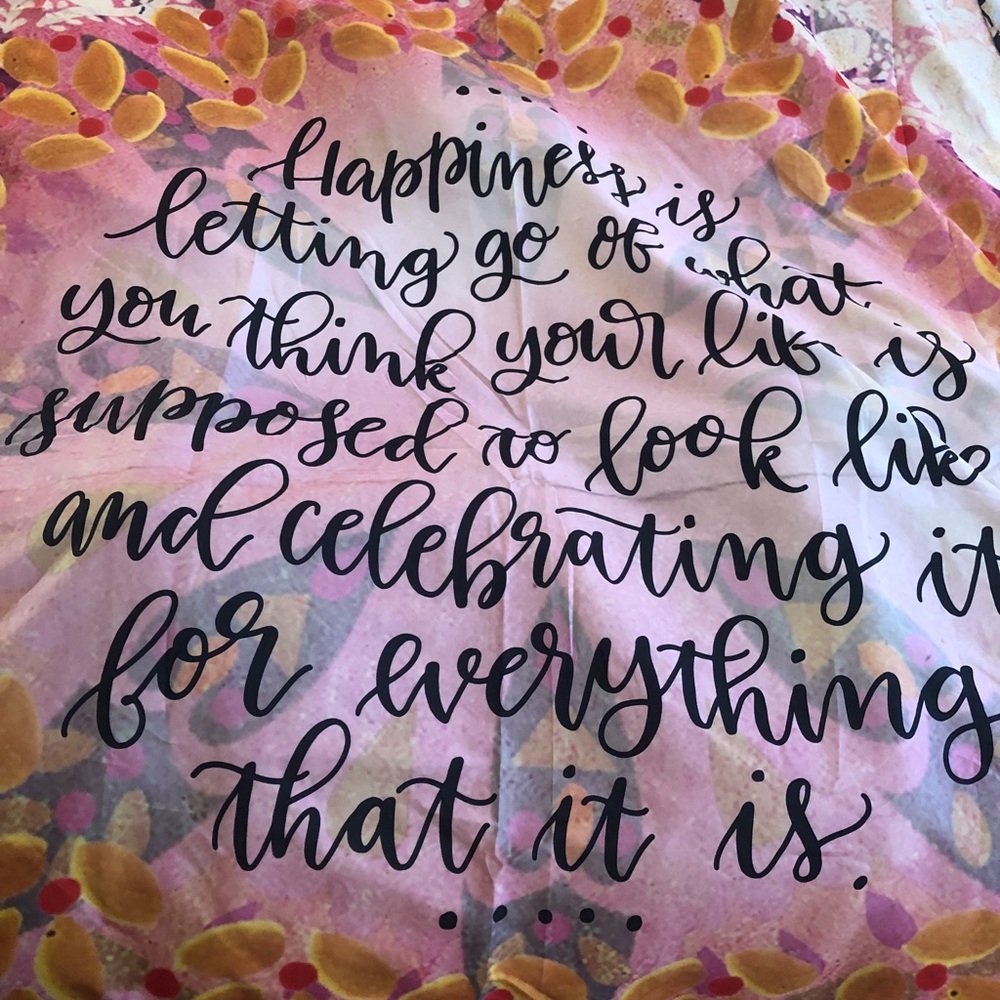 Happiness is
letting go of what
you think your life is
supposed to look like
and celebrating it
for everything
that it is.